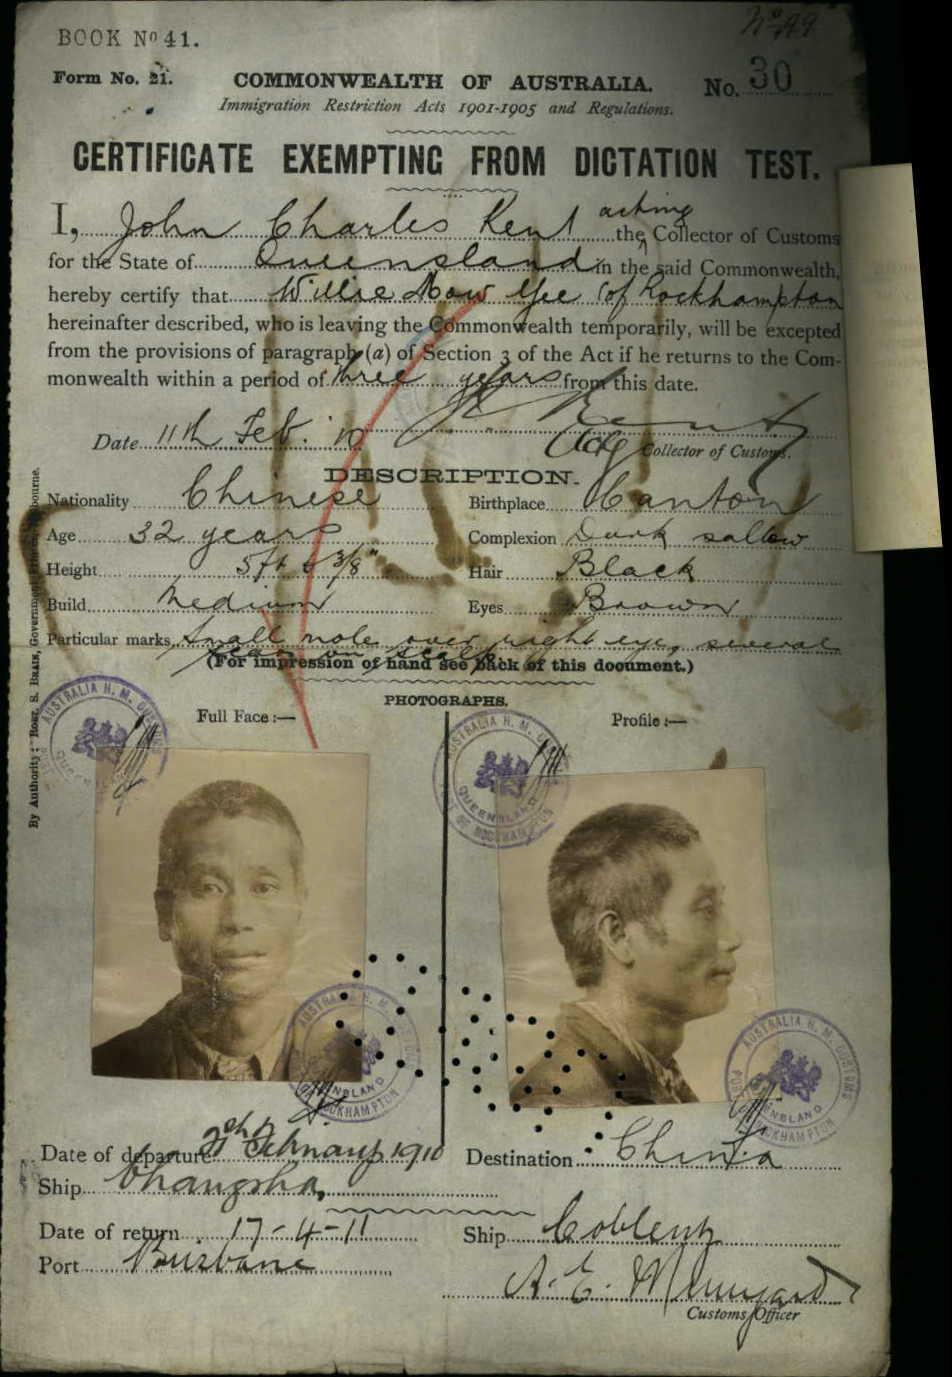 BOOK No 41.
No. 49
Form No. 21. COMMONWEALTH OF AUSTRALIA. No. 30
Immigration Restriction Acts 1901-1905 and Regulations.
CERTIFICATE EXEMPTING FROM DICTATION TEST.
I, John Charles Kent acting the Collector of Customs
for the State of Queensland in the said Commonwealth,
hereby certify that Willie Mow Yee (of Rockhampton
hereinafter described, who is leaving the Commonwealth temporarily, will be excepted
from the provisions of paragraph (a) of Section 3 of the Act if he returns to the Com-
monwealth within a period of three years from this date.
Date 11th Feb. 10
J. C. Kent
Actg Collector of Customs.
DESCRIPTION.
Nationality Chinese Birthplace Canton
Age 32 years Complexion Dark sallow
Height 5ft 6 3/8" Hair Black
Build Medium Eyes Brown
Particular marks Small mole over right eye, several
scars on scalp
(For impression of hand see back of this document.)
PHOTOGRAPHS.
Full Face :— Profile :—
By Authority: ROBT. S. BRAIN, Government Printer, Melbourne.
AUSTRALIA H. M. CUSTOMS
QUEENSLAND
AUSTRALIA H. M. CUSTOMS
QUEENSLAND
PORT OF ROCKHAMPTON
AUSTRALIA H. M. CUSTOMS
QUEENSLAND
ROCKHAMPTON
AUSTRALIA H. M. CUSTOMS
QUEENSLAND
PORT OF ROCKHAMPTON
Date of departure February 1910 Destination China
Ship Changsha,
Date of return 17-4-11 Ship Coblenz
Port Brisbane
A. E.
Customs Officer